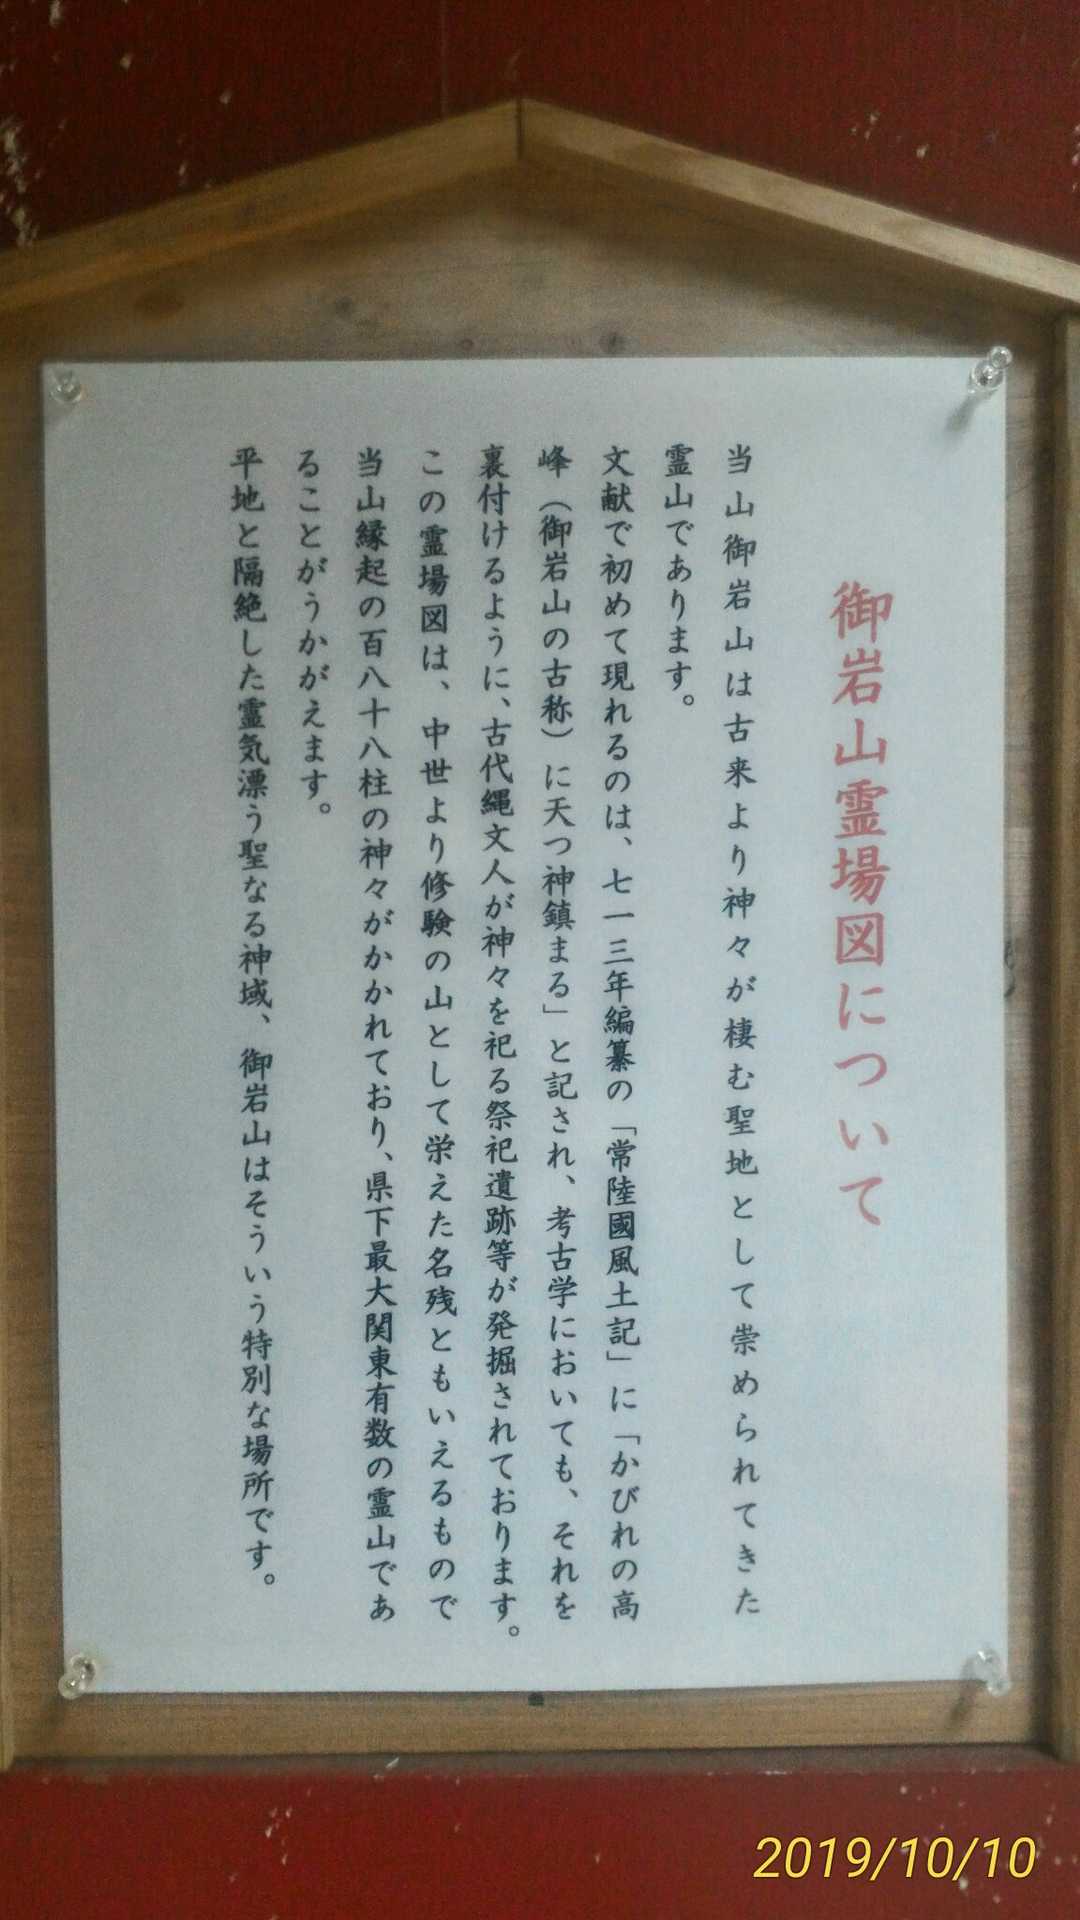 御岩山霊場図について
当山御岩山は古来より神々が棲む聖地として崇められてきた
霊山であります。
文献で初めて現れるのは、七一三年編纂の「常陸國風土記」に「かびれの高
峰（御岩山の古称）に天つ神鎮まる」と記され、考古学においても、それを
裏付けるように、古代縄文人が神々を祀る祭祀遺跡等が発掘されております。
この霊場図は、中世より修験の山として栄えた名残ともいえるもので
当山縁起の百八十八柱の神々がかかれており、県下最大関東有数の霊山であ
ることがうかがえます。
平地と隔絶した霊気漂う聖なる神域、御岩山はそういう特別な場所です。
2019/10/10